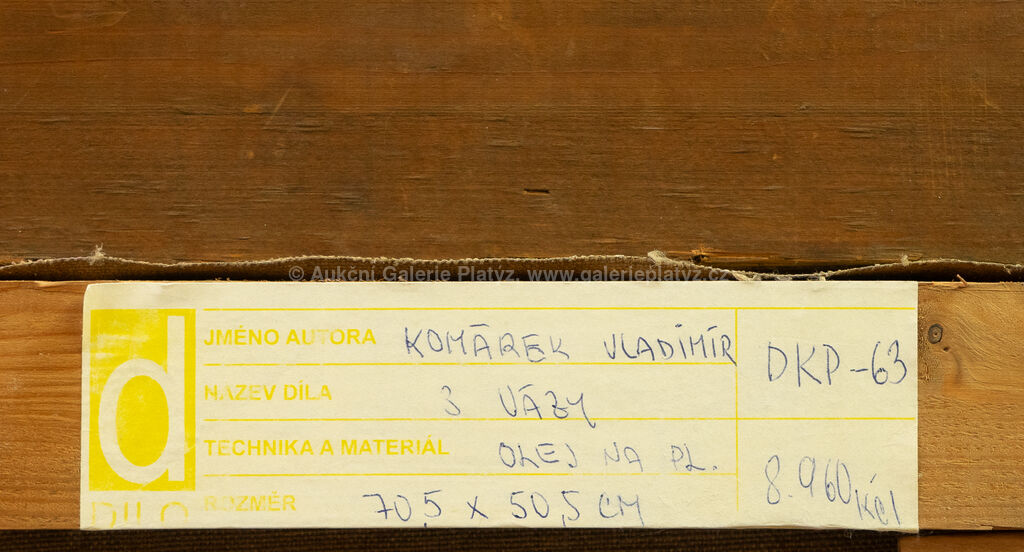 © Aukční Galerie Platýz, www.galerieplatyz.cz
d
DÍLO
JMÉNO AUTORA KOMÁREK VLADIMÍR
NÁZEV DÍLA 3 VÁZY
TECHNIKA A MATERIÁL OLEJ NA PL.
ROZMĚR 70,5 x 50,5 CM
DKP-63
8.960 Kčs